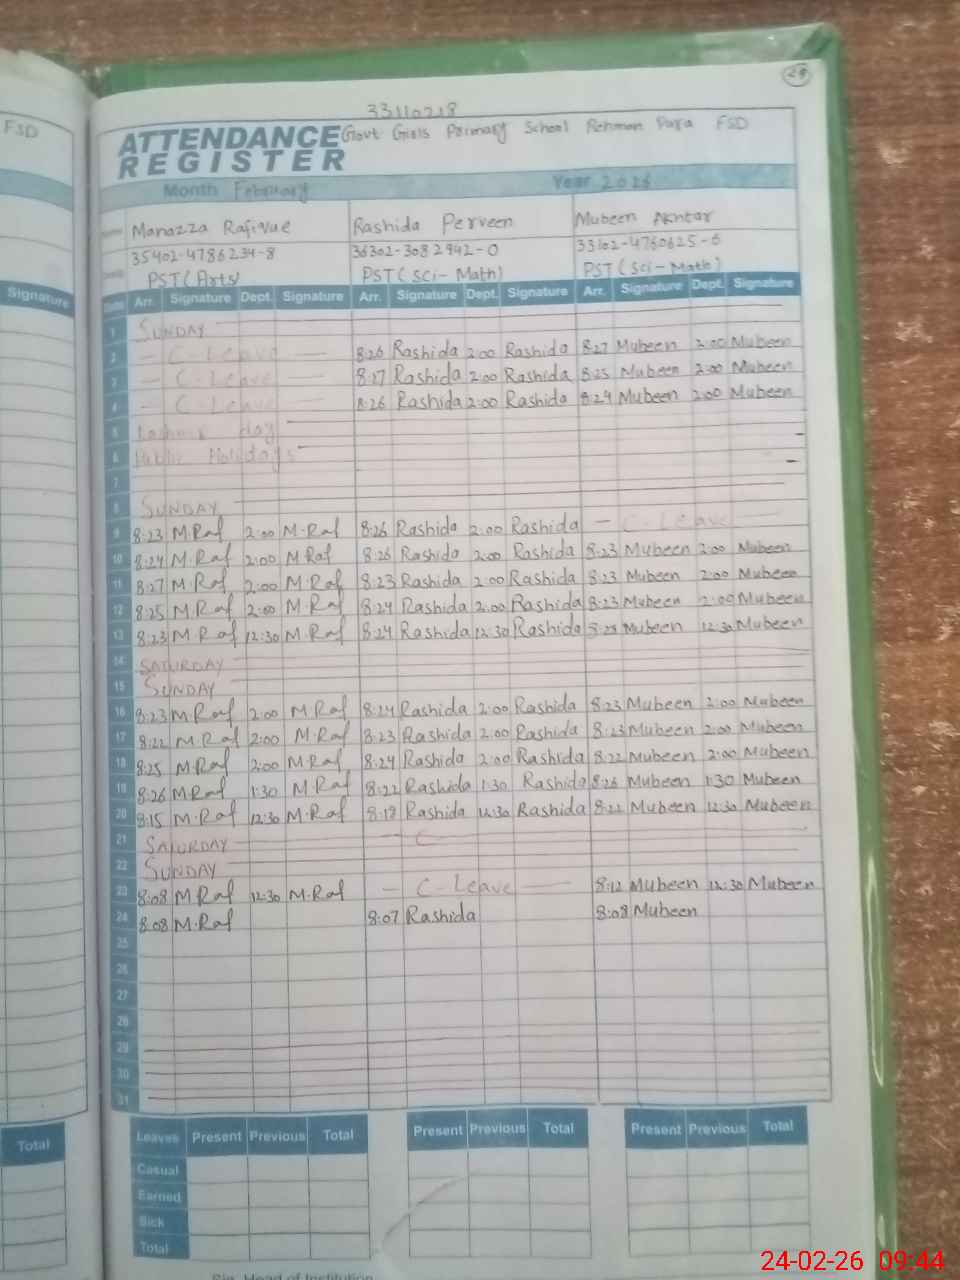 29
33110218
FSD
ATTENDANCE Govt Girls Primary School Rehman Pura FSD
REGISTER
Month February Year 2026
Name Manazza Rafique Rashida Perveen Mubeen Akhtar
35402-4786234-8 36302-3082942-0 33102-4760625-6
PST (Arts) PST (Sci-Math) PST (Sci-Math)
Signature
Date Arr. Signature Dept. Signature Arr. Signature Dept. Signature Arr. Signature Dept. Signature
1 SUNDAY
2 — C-Leave — 8:26 Rashida 2:00 Rashida 8:27 Mubeen 2:00 Mubeen
3 — C-Leave — 8:27 Rashida 2:00 Rashida 8:25 Mubeen 2:00 Mubeen
4 — C-Leave — 8:26 Rashida 2:00 Rashida 8:24 Mubeen 2:00 Mubeen
5 Kashmir day
6 Public Holidays
7
8 SUNDAY
9 8:23 M.Raf 2:00 M.Raf 8:26 Rashida 2:00 Rashida — C-Leave —
10 8:24 M.Raf 2:00 M Raf 8:26 Rashida 2:00 Rashida 8:23 Mubeen 2:00 Mubeen
11 8:27 M.Raf 2:00 M.Raf 8:23 Rashida 2:00 Rashida 8:23 Mubeen 2:00 Mubeen
12 8:25 M.Raf 2:00 M.Raf 8:24 Rashida 2:00 Rashida 8:23 Mubeen 2:00 Mubeen
13 8:23 M Raf 12:30 M.Raf 8:24 Rashida 12:30 Rashida Mubeen 12:30 Mubeen
14 SATURDAY
15 SUNDAY
16 8:23 M.Raf 2:00 M Raf 8:24 Rashida 2:00 Rashida 8:23 Mubeen 2:00 Mubeen
17 8:22 M Raf 2:00 M.Raf 8:23 Rashida 2:00 Rashida 8:23 Mubeen 2:00 Mubeen
18 8:25 M.Raf 2:00 M.Raf 8:24 Rashida 2:00 Rashida 8:22 Mubeen 2:00 Mubeen
19 8:26 M.Raf 1:30 M.Raf 8:22 Rashida 1:30 Rashida 8:26 Mubeen 1:30 Mubeen
20 8:15 M.Raf 12:30 M.Raf 8:18 Rashida 12:30 Rashida 8:22 Mubeen 12:30 Mubeen
21 SATURDAY C
22 SUNDAY
23 8:08 M Raf 12:30 M.Raf — C-Leave — 8:12 Mubeen 12:30 Mubeen
24 8:08 M.Raf 8:07 Rashida 8:08 Mubeen
25
26
27
28
29
30
31
Total
Leaves Present Previous Total Present Previous Total Present Previous Total
Casual
Earned
Sick
Total
Sig. Head of Institution
24-02-26 09:44